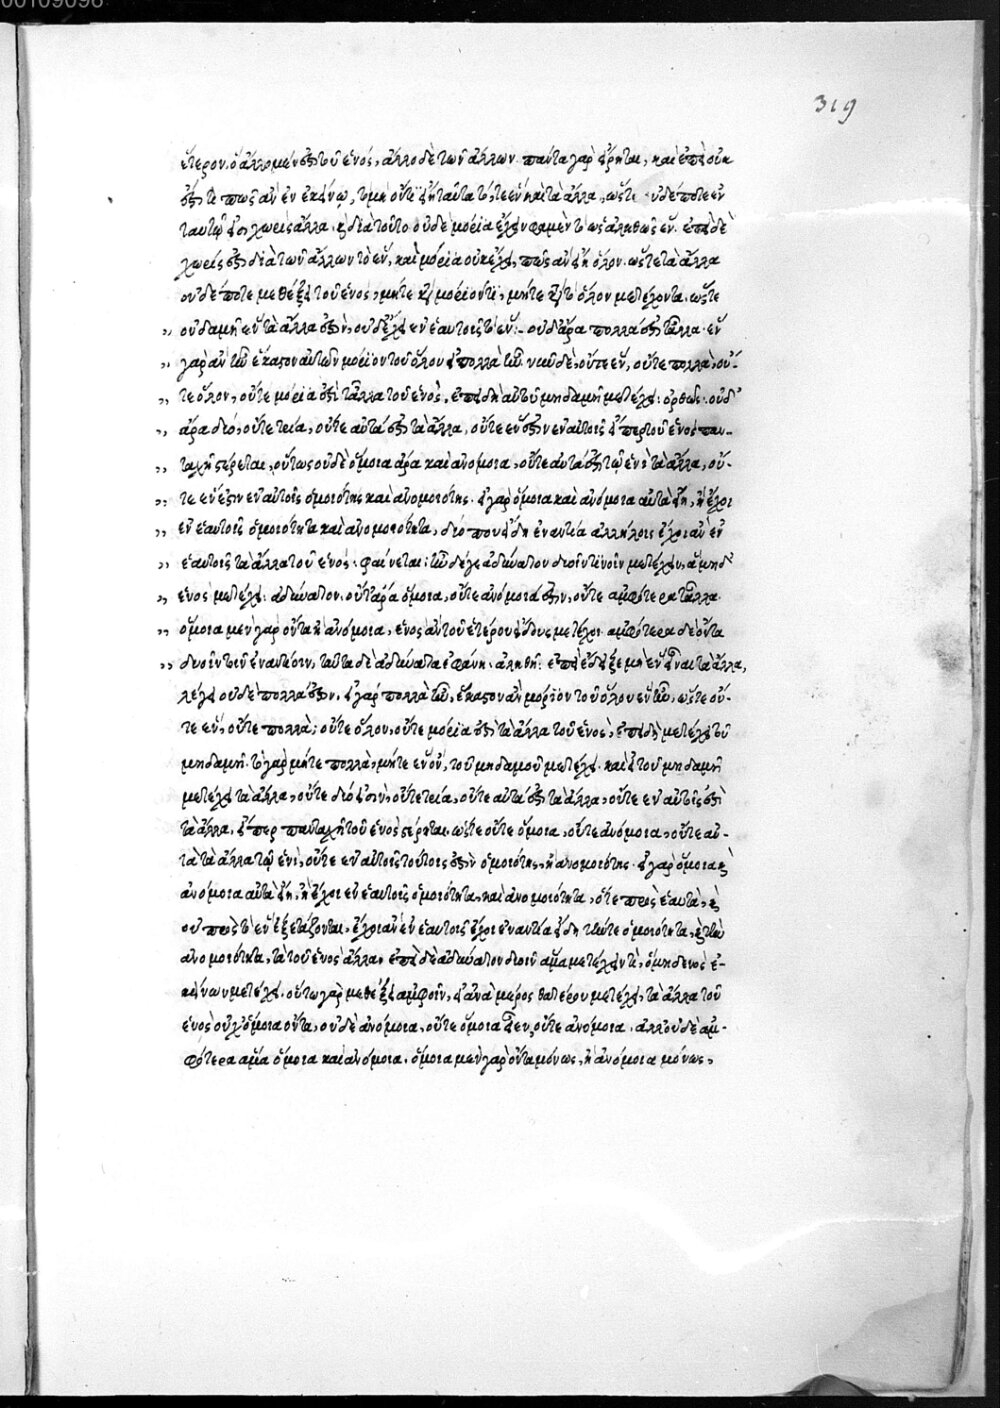 00109098
319
ἕτερον. ὃ ἄλλο μέν ἐστι τοῦ ἑνός, ἄλλο δὲ τῶν ἄλλων. πάντα γὰρ εἴρηται, καὶ ἐπεὶ οὐκ
ἔστι πως ἂν ἐν ἐκείνῳ, τῷ μὴ οὔτ' ᾖ ταῦτα τό, τε ἓν καὶ τὰ ἄλλα, ὥστε οὐδέποτε ἐν
ταυτῷ ἐστι χωρὶς ἄλλα. καὶ διὰ τοῦτο οὐδὲ μόρια ἔχειν φαμὲν τὸ ὡς ἀληθῶς ἕν. ἐπεὶ δὲ
χωρίς ἐστι διὰ τῶν ἄλλων τὸ ἕν, καὶ μόρια οὐκ ἔχει, πῶς ἂν εἴη ὅλον. ὥστε τὰ ἄλλα
οὐδέποτε μεθέξει τοῦ ἑνός, μήτε κατὰ μόριόν τι, μήτε κατὰ τὸ ὅλον μετέχοντα. ὥστε
" οὐδαμῇ ἓν τὰ ἄλλα ἐστὶν, οὐδ' ἔχει ἐν ἑαυτοῖς τὸ ἕν:- οὐδ' ἄρα πολλά ἐστι τἆλλα. ἓν
" γὰρ ἂν ἦν ἕκαστον αὐτῶν μόριον τοῦ ὅλου εἰ πολλὰ ἦν. νῦν δὲ, οὔτε ἕν, οὔτε πολλὰ, οὔ-
" τε ὅλον, οὔτε μόριά ἐστὶ τἆλλα τοῦ ἑνὸς, ἐπειδὴ αὐτοῦ μηδαμῇ μετέχει: ὀρθῶς. οὐδ'
" ἄρα δύό, οὔτε τρία, οὔτε αὐτά ἐστι τὰ ἄλλα, οὔτε ἔνεστιν ἐν αὐτοῖς εἴπερ τοῦ ἑνὸς παν-
" ταχῇ στέρεται, οὕτως οὐδὲ ὅμοια ἄρα καὶ ἀνόμοια, οὔτε αὐτά ἐστι τῷ ἑνὶ τὰ ἄλλα, οὔ-
" τε ἔνεστιν ἐν αὐτοῖς ὁμοιότης καὶ ἀνομοιότης. εἰ γὰρ ὅμοια καὶ ἀνόμοια αὐτὰ εἴη, ἢ ἔχοι
" ἐν ἑαυτοῖς ὁμοιότητα καὶ ἀνομοιότητα, δύό που εἴδη ἐναντία ἀλλήλοις ἔχοι ἂν ἐν
" ἑαυτοῖς τὰ ἄλλα τοῦ ἑνός. φαίνεται: ἦν δέ γε ἀδύνατον δυοῖν τινοῖν μετέχειν, ἃ μηδ'
" ἑνὸς μετέχει. ἀδύνατον. οὔτ' ἄρα ὅμοια, οὔτε ἀνόμοιά ἐστιν, οὔτε ἀμφότερα τἆλλα.
" ὅμοια μὲν γὰρ ὄντα ἢ ἀνόμοια, ἑνὸς ἂν τοῦ ἑτέρου εἴδους μετέχοι. ἀμφότερα δὲ ὄντα
" δυοῖν τοῖν ἐναντίοιν, ταῦτα δὲ ἀδύνατα ἐφάνη. ἀληθῆ: ἐπεὶ ἔδειξε μὴ ἓν εἶναι τὰ ἄλλα,
λέγει οὐδὲ πολλά ἐστιν. εἰ γὰρ πολλὰ ἦν, ἕκαστον ἂν μόριον τοῦ ὅλου ἓν ἦν, ὥστε οὔ-
τε ἓν, οὔτε πολλὰ; οὔτε ὅλον, οὔτε μόριά ἐστι τὰ ἄλλα τοῦ ἑνὸς, ἐπειδὴ μετέχει τοῦ
μηδαμῇ. τὸ γὰρ μήτε πολλὰ, μήτε ἓν ὂν, τοῦ μηδαμοῦ μετέχει. καὶ εἰ τοῦ μηδαμῇ
μετέχει τὰ ἄλλα, οὔτε δύό εἰσὶν, οὔτε τρία, οὔτε αὐτά ἐστι τὰ ἄλλα, οὔτε ἐν αὐτοῖς ἐστὶ
τὰ ἄλλα, εἴπερ πανταχῇ τοῦ ἑνὸς στέρηται. ὥστε οὔτε ὅμοια, οὔτε ἀνόμοια, οὔτε αὐ-
τὰ τὰ ἄλλα τῷ ἑνὶ, οὔτε ἐν αὐτοῖς τούτοις ἐστὶν ὁμοιότης, ἢ ἀνομοιότης. εἰ γὰρ ὅμοια καὶ
ἀνόμοια αὐτὰ εἴη, ἢ ἔχοι ἐν ἑαυτοῖς ὁμοιότητα, καὶ ἀνομοιότητα, ὅτε πρὸς ἑαυτὰ, καὶ
οὐ πρὸς τὸ ἓν ἐξετάζονται, ἔχοι ἂν ἐν ἑαυτοῖς ἔχοι ἐναντία εἴδη τήν τε ὁμοιότητα, καὶ τὴν
ἀνομοιότητα, τὰ τοῦ ἑνὸς ἄλλα. ἐπεὶ δὲ ἀδύνατον δυοῖν ἅμα μετέχειν τι, ὃ μηδενὸς ἐ-
κείνων μετέχει. οὕτω γὰρ μεθέξει ἀμφοῖν, εἰ ἀνὰ μέρος θατέρου μετέχει, τὰ ἄλλα τοῦ
ἑνὸς οὐχ ὅμοια ὄντα, οὐδὲ ἀνόμοια, οὔτε ὅμοια εἶεν, οὔτε ἀνόμοια. ἀλλ' οὐδὲ ἀμ-
φότερα ἅμα ὅμοια καὶ ἀνόμοια. ὅμοια μὲν γὰρ ὄντα μόνως, ἢ ἀνόμοια μόνως,